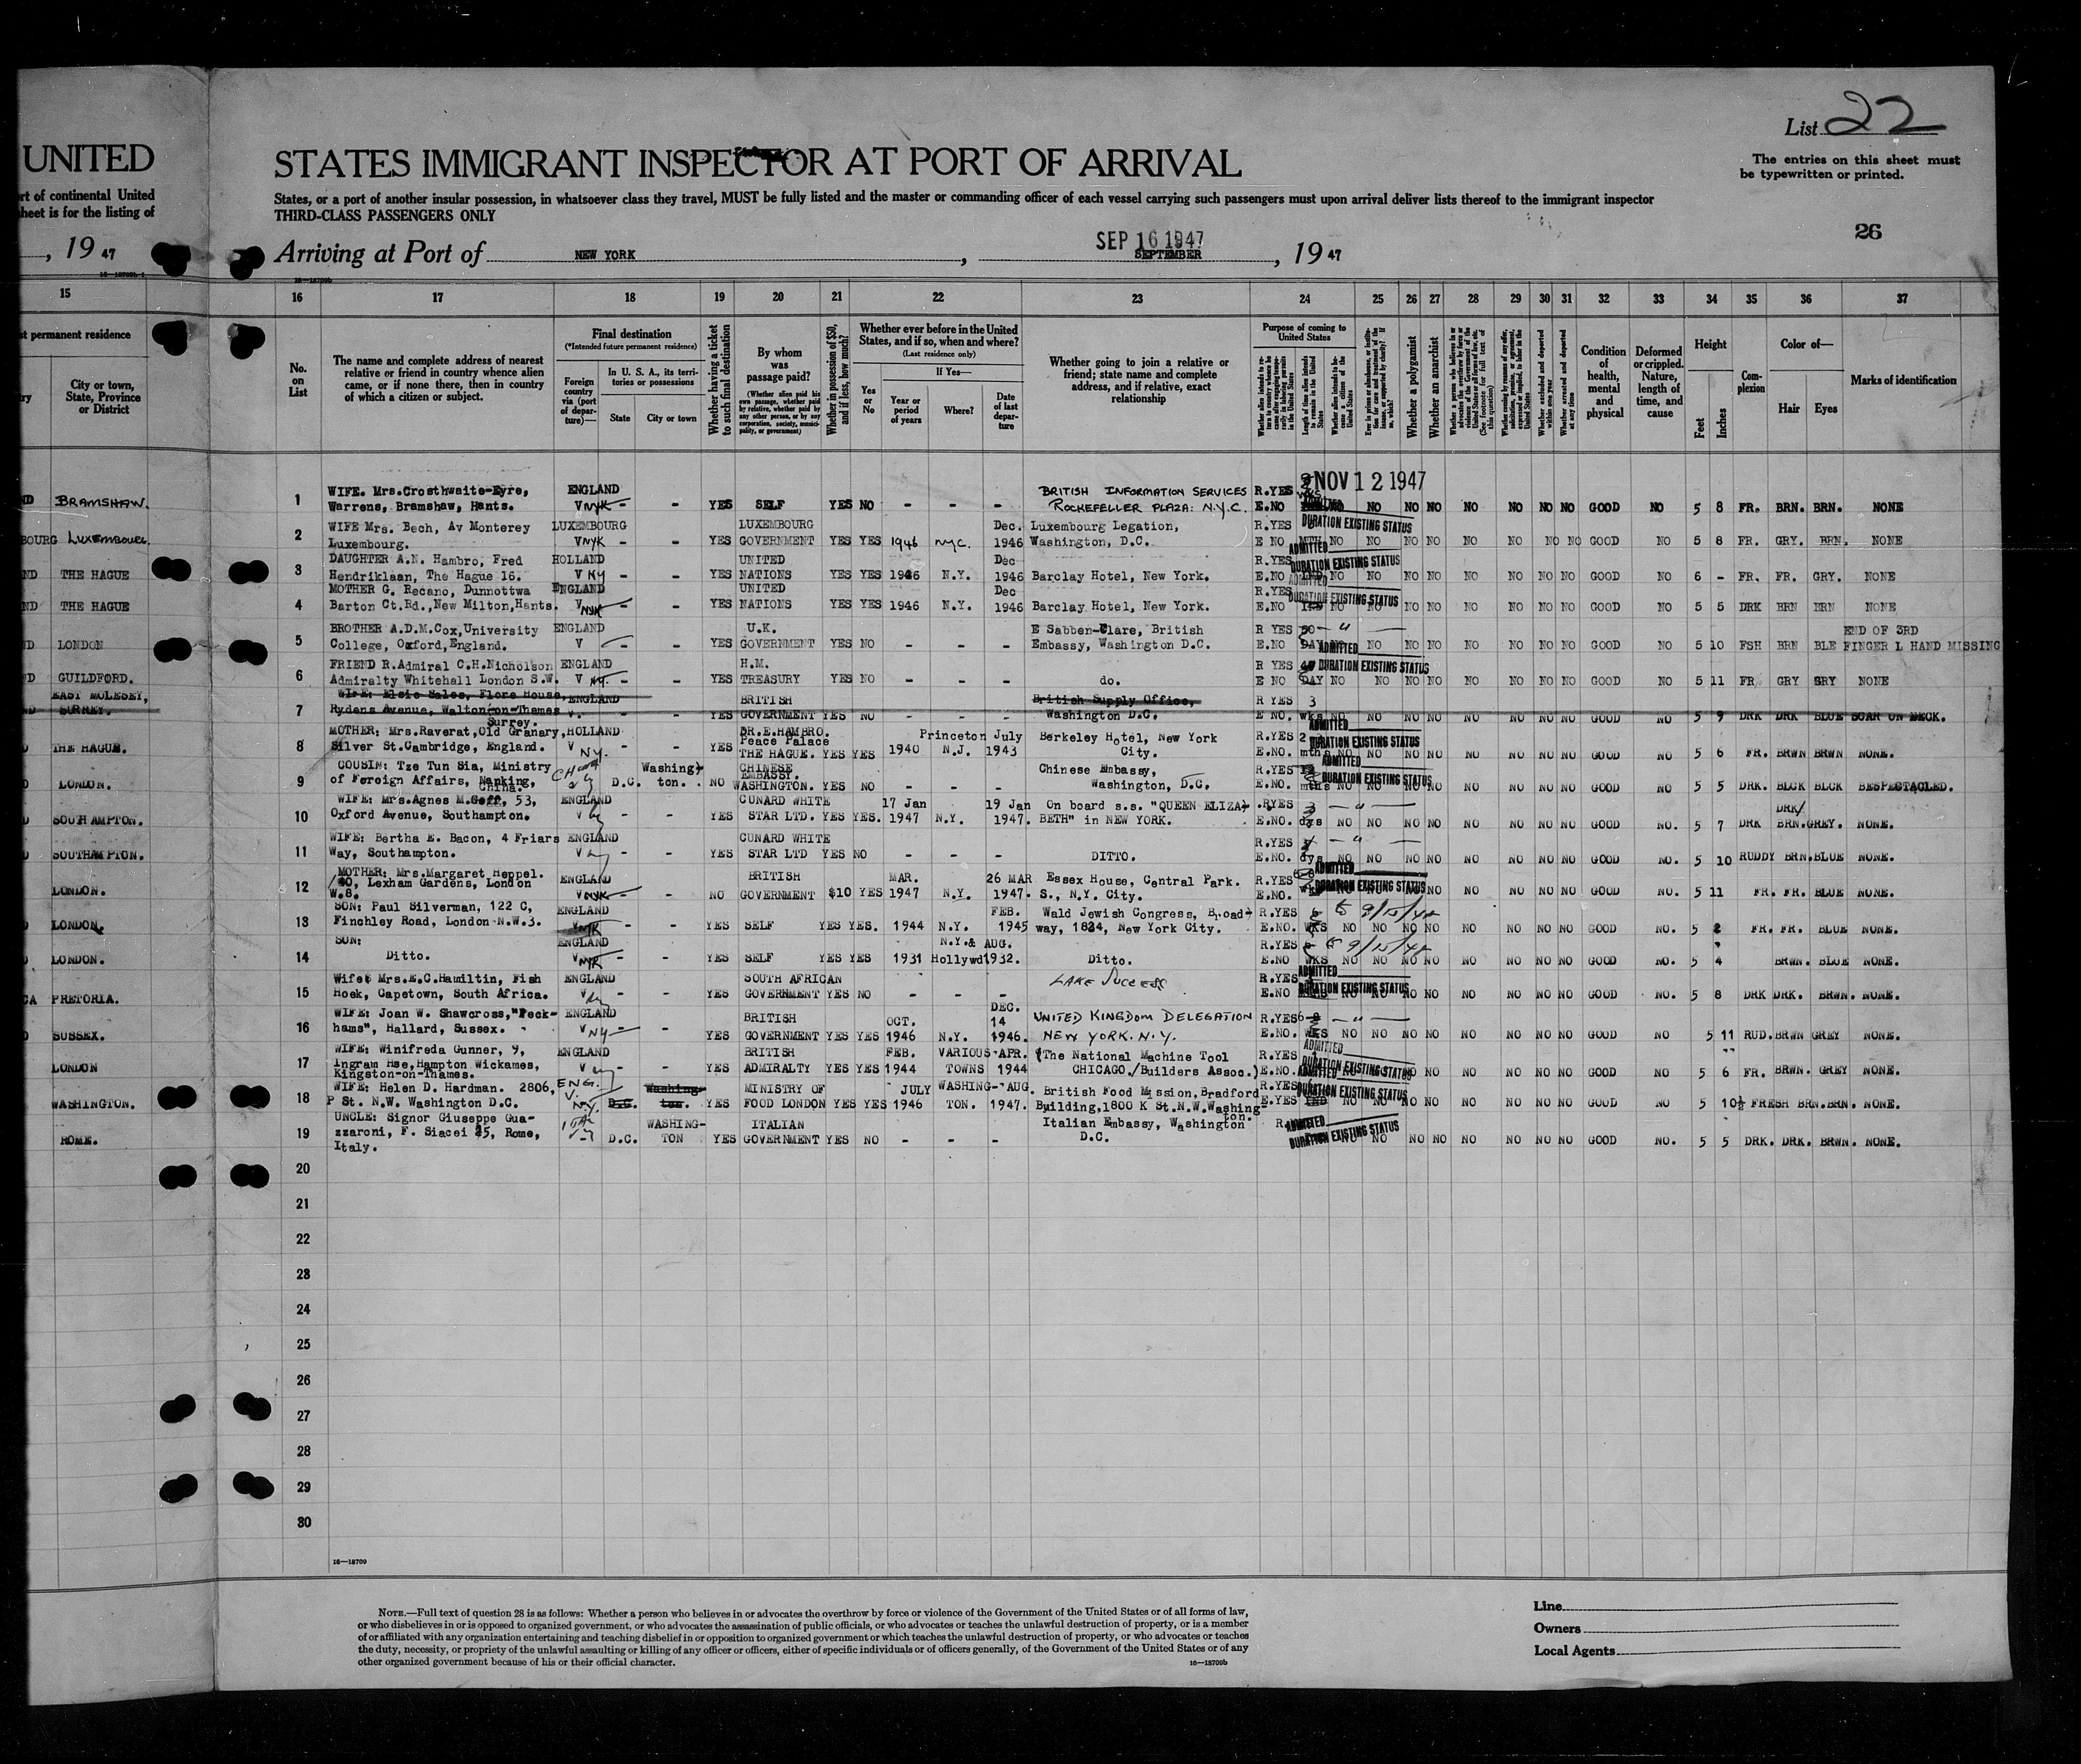 List 22
UNITED STATES IMMIGRANT INSPECTOR AT PORT OF ARRIVAL
The entries on this sheet must
be typewritten or printed.
rt of continental United
States, or a port of another insular possession, in whatsoever class they travel, MUST be fully listed and the master or commanding officer of each vessel carrying such passengers must upon arrival deliver lists thereof to the immigrant inspector
heet is for the listing of
THIRD-CLASS PASSENGERS ONLY
26
, 19 47
Arriving at Port of NEW YORK, SEP 16 1947 SEPTEMBER, 19 47
16—18709b-1
16—18709b
15 16 17 18 19 20 21 22 23 24 25 26 27 28 29 30 31 32 33 34 35 36 37
t permanent residence
City or town,
State, Province
or District
No.
on
List
The name and complete address of nearest
relative or friend in country whence alien
came, or if none there, then in country
of which a citizen or subject.
Final destination
(*Intended future permanent residence)
Foreign
country
via (port
of depar-
ture)—
In U. S. A., its terri-
tories or possessions
State City or town
Whether having a ticket
to such final destination
By whom
was
passage paid?
(Whether alien paid his
own passage, whether paid
by relative, whether paid by
any other person, or by any
corporation, society, munici-
pality, or government)
Whether in possession of $50,
and if less, how much?
Whether ever before in the United
States, and if so, when and where?
(Last residence only)
Yes
or
No
If Yes—
Year or
period
of years
Where?
Date
of last
depar-
ture
Whether going to join a relative or
friend; state name and complete
address, and if relative, exact
relationship
Purpose of coming to
United States
Whether a polygamist
Whether an anarchist
Whether excluded and deported
within one year
Whether arrested and deported
at any time
Condition
of
health,
mental
and
physical
Deformed
or crippled.
Nature,
length of
time, and
cause
Height
Feet Inches
Com-
plexion
Color of—
Hair Eyes
Marks of identification
NOV 12 1947
BRAMSHAW. 1 WIFE. Mrs.Crosthwaite-Eyre, ENGLAND BRITISH INFORMATION SERVICES R.YES
Warrens, Bramshaw, Hants. VNYK - - YES SELF YES NO - - - ROCKEFELLER PLAZA: N.Y.C. E.NO NO NO NO NO NO NO NO NO GOOD NO 5 8 FR. BRN. BRN. NONE
BOURG Luxembourg. 2 WIFE Mrs. Bech, Av Monterey LUXEMBOURG LUXEMBOURG Dec. Luxembourg Legation, R.YES DURATION EXISTING STATUS
Luxembourg. VNYK - - YES GOVERNMENT YES YES 1946 NYC. 1946 Washington, D.C. E NO NO NO NO NO NO NO NO NO GOOD NO 5 8 FR. GRY. BRN. NONE
THE HAGUE 3 DAUGHTER A.N. Hambro, Fred HOLLAND UNITED Dec R.YES ADMITTED DURATION EXISTING STATUS
Hendriklaan, The Hague 16. V NY - - YES NATIONS YES YES 1946 N.Y. 1946 Barclay Hotel, New York. E.NO NO NO NO NO NO NO NO NO GOOD NO 6 - FR. FR. GRY. NONE
THE HAGUE 4 MOTHER G. Recano, Dunnottwa ENGLAND UNITED Dec R.YES ADMITTED DURATION EXISTING STATUS
Barton Ct.Rd.,New Milton,Hants. VNYK - - YES NATIONS YES YES 1946 N.Y. 1946 Barclay Hotel, New York. E.NO NO NO NO NO NO NO NO NO GOOD NO 5 5 DRK BRN BRN NONE
LONDON 5 BROTHER A.D.M.Cox,University ENGLAND U.K. E Sabben-Clare, British R YES END OF 3RD
College, Oxford,England. V - - YES GOVERNMENT YES NO - - - Embassy, Washington D.C. E NO ADMITTED NO NO NO NO NO NO NO GOOD NO 5 10 FSH BRN BLE FINGER L HAND MISSING
GUILDFORD. 6 FRIEND R.Admiral C.H.Nicholson ENGLAND H.M. R YES DURATION EXISTING STATUS
Admiralty Whitehall London S.W. V - - YES TREASURY YES NO - - - do. E NO DAY NO NO NO NO NO NO NO NO GOOD NO 5 11 FR GRY GRY NONE
EAST MOLESEY, SURREY. 7 WIFE: Elsie Hales, Flore House, ENGLAND BRITISH British Supply Office, R YES 3
Rydens Avenue, Walton-on-Thames Surrey. V. - - YES GOVERNMENT YES NO - - - Washington D.C. E NO. wks NO NO NO NO NO NO NO NO GOOD NO 5 9 DRK DRK BLUE SCAR ON NECK.
THE HAGUE. 8 MOTHER: Mrs.Raverat,Old Granary, HOLLAND DR.E.HAMBRO. Princeton July Berkeley Hotel, New York R.YES 2 ADMITTED DURATION EXISTING STATUS
Silver St.Cambridge, England. V NY. - - YES Peace Palace THE HAGUE. YES YES 1940 N.J. 1943 City. E.NO. mths NO NO NO NO NO NO NO NO GOOD NO 5 6 FR. BRWN BRWN NONE.
LONDON. 9 COUSIN: Tze Tun Sia, Ministry Washing- CHINESE Chinese Embassy, R.YES ADMITTED DURATION EXISTING STATUS
of Foreign Affairs, Nanking, China. D.C. ton. NO EMBASSY. WASHINGTON. YES NO - - - Washington, D.C. E.NO. mths NO NO NO NO NO NO NO NO GOOD NO 5 5 DRK. BLCK BLCK BESPECTACLED.
SOUTHAMPTON. 10 WIFE: Mrs.Agnes M.Goff, 53, ENGLAND CUNARD WHITE 17 Jan 19 Jan On board s.s. "QUEEN ELIZA- R.YES 3 DRK/
Oxford Avenue, Southampton. V - - YES STAR LTD. YES YES. 1947 N.Y. 1947. BETH" in NEW YORK. E.NO. dys NO NO NO NO NO NO NO NO GOOD NO. 5 7 DRK BRN.GREY. NONE.
SOUTHAMPTON. 11 WIFE: Bertha E. Bacon, 4 Friars ENGLAND CUNARD WHITE R.YES
Way, Southampton. V - - YES STAR LTD YES NO - - - DITTO. E.NO. dys NO NO NO NO NO NO NO NO GOOD NO. 5 10 RUDDY BRN.BLUE NONE.
LONDON. 12 MOTHER: Mrs.Margaret Heppel. ENGLAND BRITISH MAR. 26 MAR Essex House, Central Park. R.YES ADMITTED DURATION EXISTING STATUS
40, Lexham Gardens, London W.8. VNYK - NO GOVERNMENT $10 YES 1947 N.Y. 1947. S., N.Y. City. E.NO. NO NO NO NO NO GOOD NO. 5 11 FR. FR. BLUE NONE.
LONDON. 13 SON: Paul Silverman, 122 C, ENGLAND FEB. Wald Jewish Congress, Broad- R.YES
Finchley Road, London N.W.3. VNYK - - YES SELF YES YES. 1944 N.Y. 1945 way, 1834, New York City. E.NO. WKS NO NO NO NO NO NO NO NO GOOD NO. 5 2 FR. FR. BLUE NONE.
LONDON. 14 SON: ENGLAND N.Y.& AUG. R.YES
Ditto. VNYK - - YES SELF YES YES 1931 Hollywd 1932. Ditto. E.NO WKS NO NO NO NO NO NO NO NO GOOD NO. 5 4 BRWN. BLUE NONE.
PRETORIA. 15 Wife: Mrs.E.C.Hamiltin, Fish ENGLAND SOUTH AFRICAN LAKE SUCCESS R.YES ADMITTED DURATION EXISTING STATUS
Hoek, Capetown, South Africa. V - - YES GOVERNMENT YES NO - - - E.NO NO NO NO NO NO NO NO GOOD NO. 5 8 DRK DRK. BRWN. NONE.
SUSSEX. 16 WIFE: Joan W. Shawcross,"Peck- ENGLAND BRITISH OCT. DEC. 14 UNITED KINGDOM DELEGATION R.YES
hams", Hallard, Sussex. V NY - - YES GOVERNMENT YES YES 1946 N.Y. 1946. NEW YORK. N.Y. E.NO. WKS NO NO NO NO NO NO NO NO GOOD NO 5 11 RUD. BRWN GREY NONE.
LONDON 17 WIFE: Winifreda Gunner, 9, ENGLAND BRITISH FEB. VARIOUS APR. (The National Machine Tool R.YES ADMITTED DURATION EXISTING STATUS
Ingram Hse,Hampton Wickames, Kingston-on-Thames. V - - YES ADMIRALTY YES YES 1944 TOWNS 1944 CHICAGO./Builders Assoc.) E.NO. NO NO NO NO NO NO GOOD NO 5 6 FR. BRWN. GREY NONE.
WASHINGTON. 18 WIFE: Helen D. Hardman. 2806, ENG. Washing- MINISTRY OF JULY WASHING- AUG. British Food Mission, Bradford R.YES DURATION EXISTING STATUS
P St. N.W. Washington D.C. V. N.Y. D.C. ton. YES FOOD LONDON YES YES 1946 TON. 1947. Building,1800 K St.N.W.Washing-ton. E.YES NO NO NO NO NO NO NO NO GOOD NO 5 10½ FRESH BRN.BRN. NONE.
ROME. 19 UNCLE: Signor Giuseppe Gua- WASHING- ITALIAN Italian Embassy, Washington ADMITTED DURATION EXISTING STATUS
zzaroni, F. Siacei 25, Rome, D.C. TON YES GOVERNMENT YES NO - - - D.C. NO NO NO NO NO NO NO GOOD NO. 5 5 DRK. DRK. BRWN. NONE.
Italy.
20
21
22
23
24
25
26
27
28
29
30
16—18709
NOTE.—Full text of question 28 is as follows: Whether a person who believes in or advocates the overthrow by force or violence of the Government of the United States or of all forms of law,
or who disbelieves in or is opposed to organized government, or who advocates the assassination of public officials, or who advocates or teaches the unlawful destruction of property, or is a member
of or affiliated with any organization entertaining and teaching disbelief in or opposition to organized government or which teaches the unlawful destruction of property, or who advocates or teaches
the duty, necessity, or propriety of the unlawful assaulting or killing of any officer or officers, either of specific individuals or of officers generally, of the Government of the United States or of any
other organized government because of his or their official character.
16—18709b
Line
Owners
Local Agents